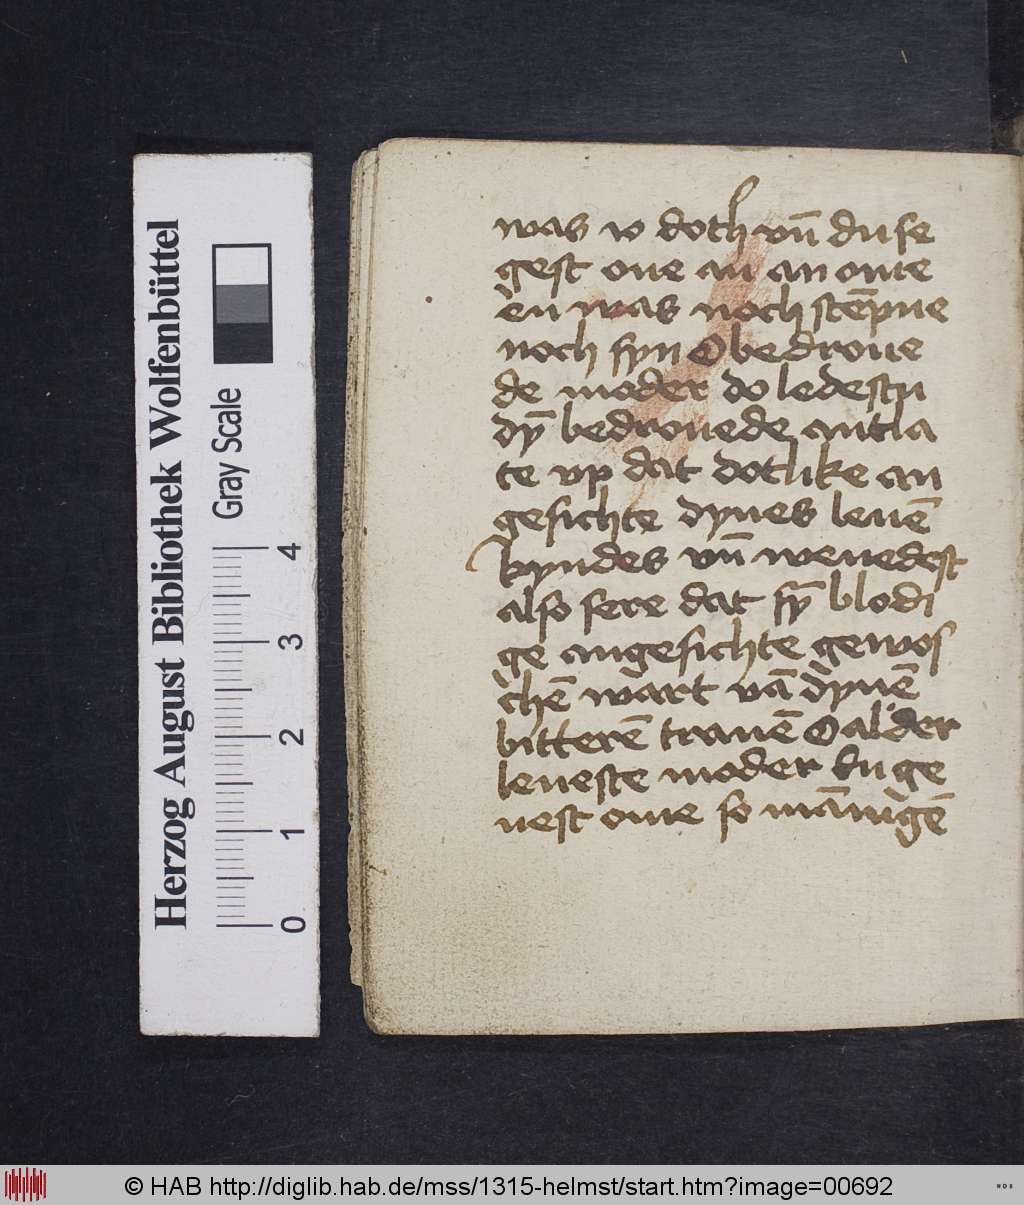 was w doth vn̄ du se
gest one an an onte
en was noch stēpne
noch syn O bedroue
de moder do ledestu
dȳ bedrouede antla
te vp dat dotlike an
gesichte dynes leuē
kyndes vn̄ wenedest
also sere dat sȳ blodi
ge angesichte gewos
chē wart vā dynē
bitterē tranē O alder
leueste moder du ge
uest ome so mānigē
Herzog August Bibliothek Wolfenbüttel
Gray Scale
0 1 2 3 4
© HAB http://diglib.hab.de/mss/1315-helmst/start.htm?image=00692